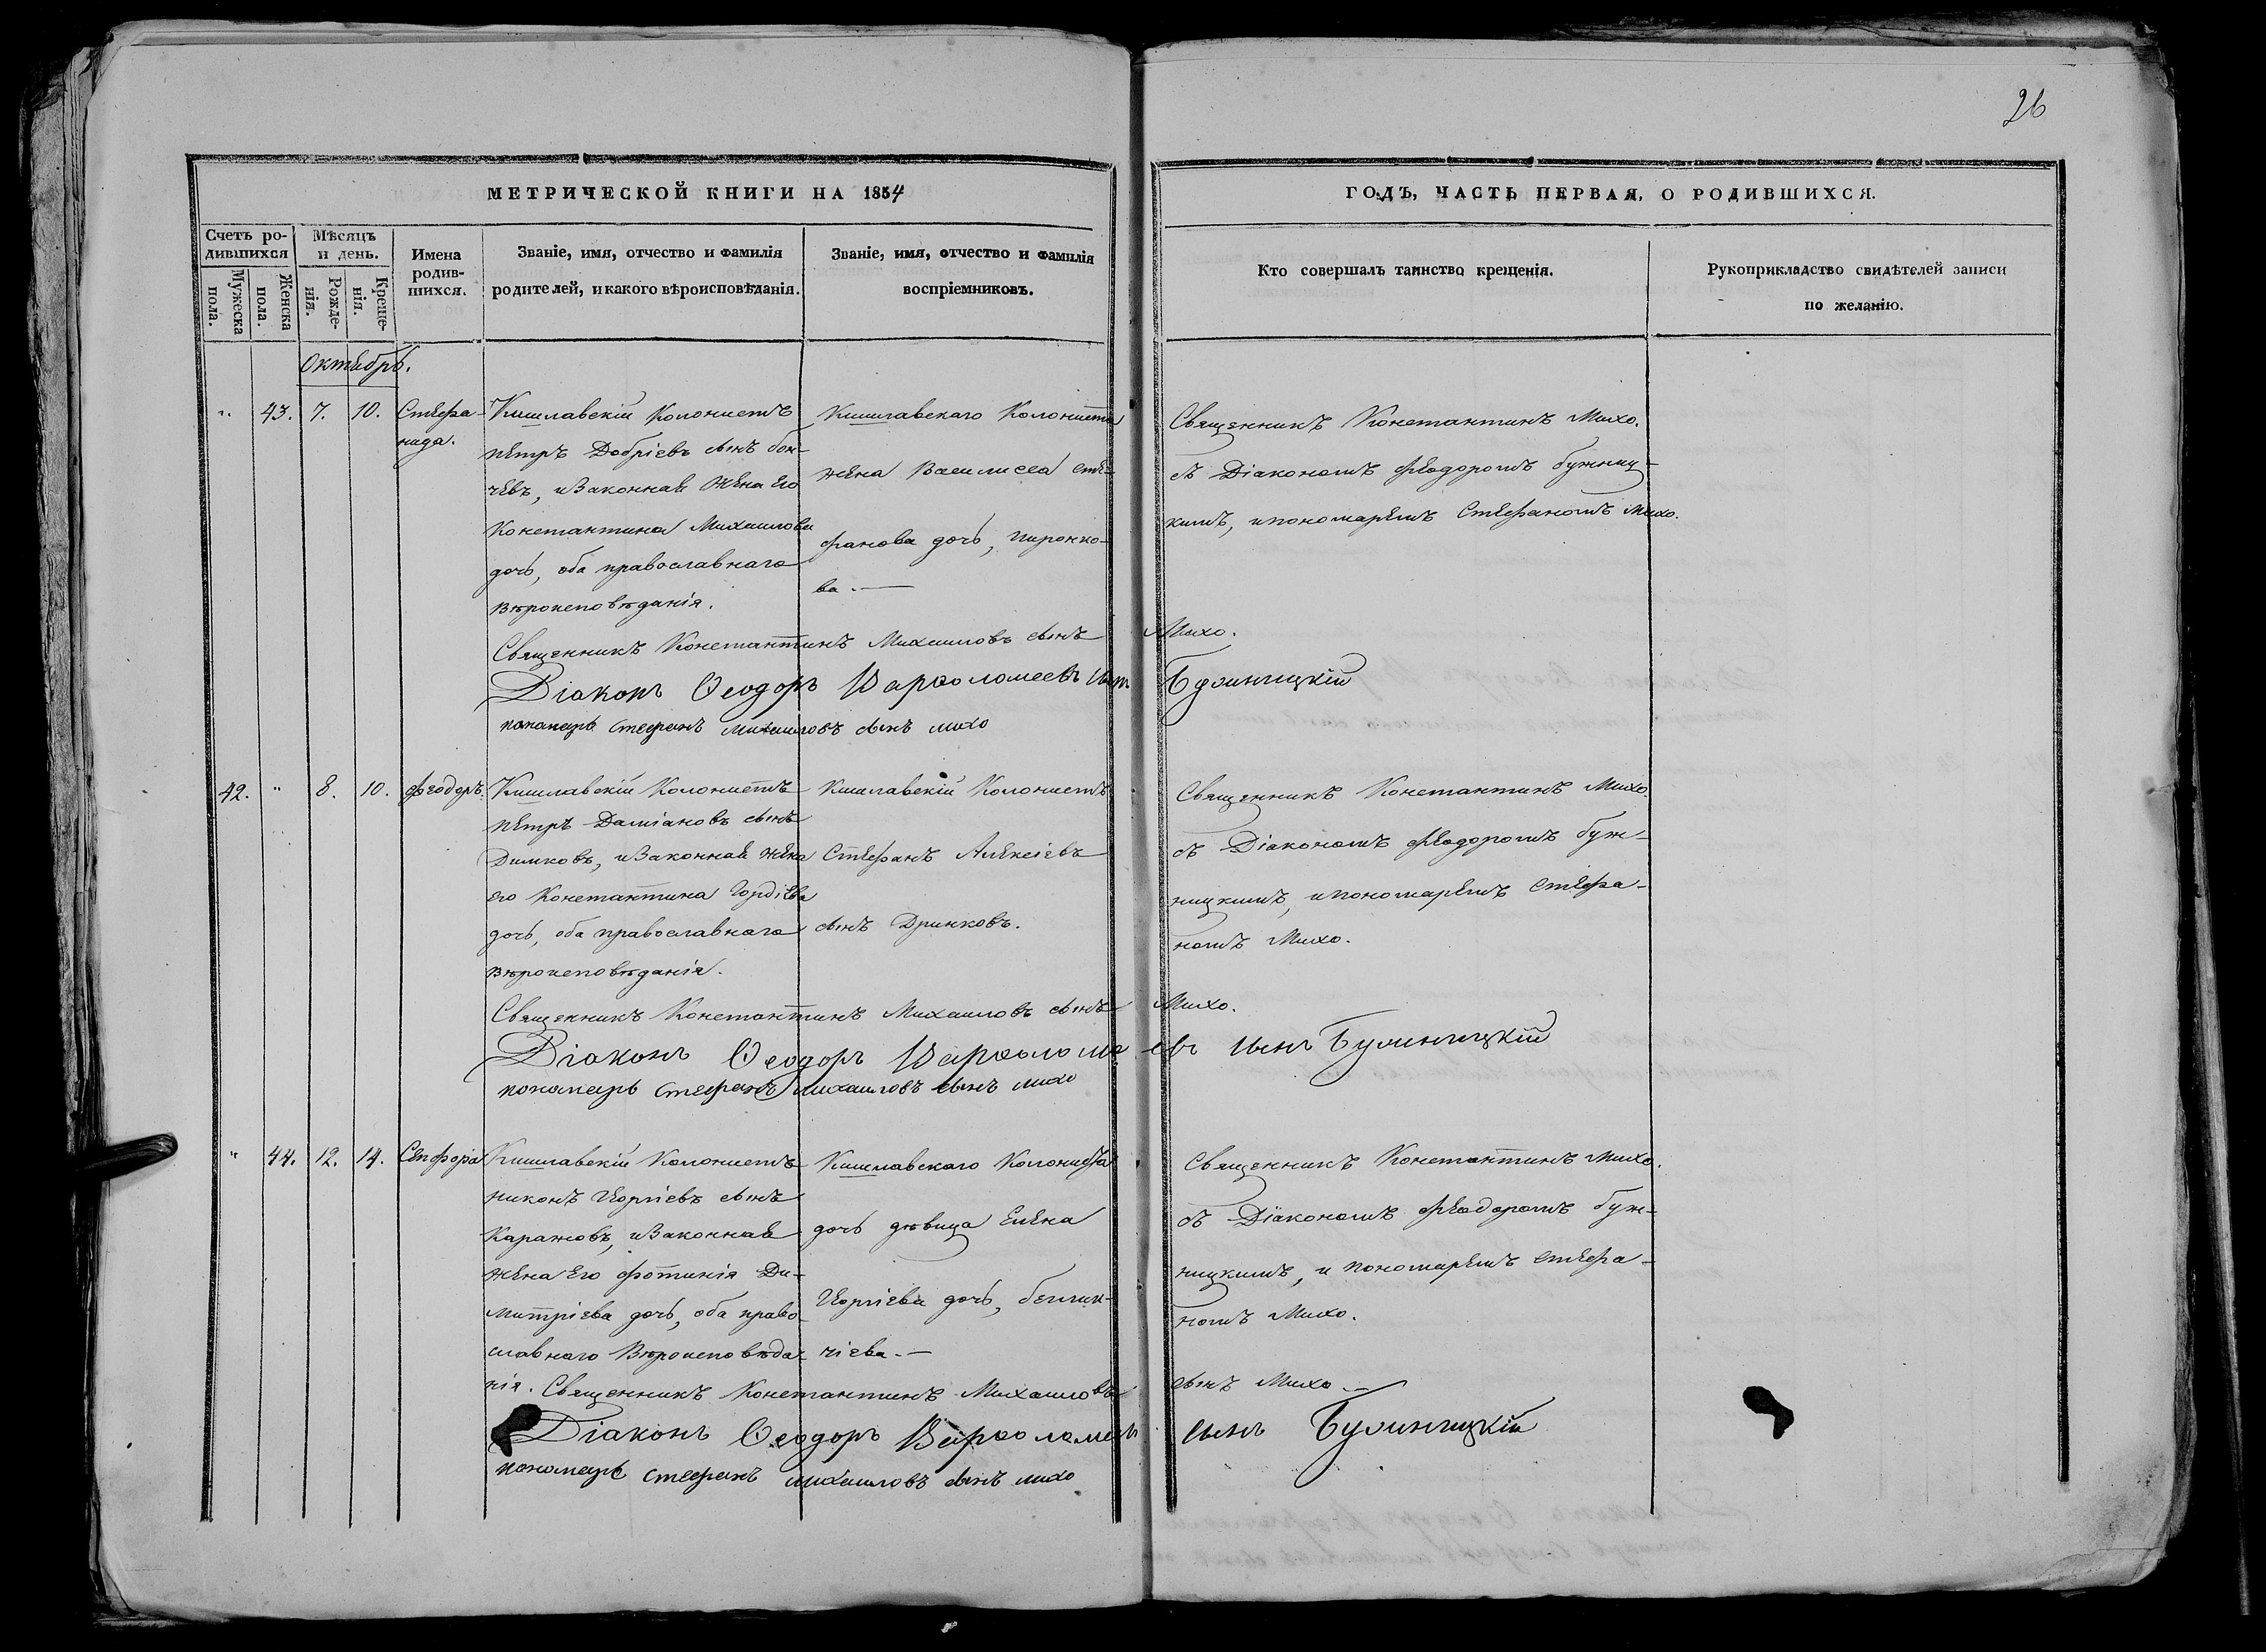 26
МЕТРИЧЕСКОЙ КНИГИ НА 1854
ГОДЪ, ЧАСТЬ ПЕРВАЯ, О РОДИВШИХСЯ.
Счетъ ро-
дившихся
Мужеска
пола.
Женска
пола.
Мѣсяцъ
и день.
Рожде-
нія.
Креще-
нія.
Имена
родив-
шихся.
Званіе, имя, отчество и фамилія
родителей, и какого вѣроисповѣданія.
Званіе, имя, отчество и фамилія
воспріемниковъ.
Кто совершалъ таинство крещенія.
Рукоприкладство свидѣтелей записи
по желанію.
Октябрь.
" 43. 7. 10. Стефа-
нида.
Кишлавскій Колонистъ
Петръ Добріевъ сынъ бон-
чевъ, и Законная жена его
Константина Михаилова
дочь, оба православнаго
вѣроисповѣданія.
Кишлавскаго Колониста
жена Василисса сте-
фанова дочь, Пиронко-
ва.
Священникъ Константинъ Михо.
съ Діакономъ Феодоромъ бужниц-
кимъ, и пономаремъ Стефаномъ Михо.
Священникъ Константинъ Михаиловъ сынъ Михо.
Діаконъ Ѳеодоръ Варѳоломеевъ сынъ
пономарь стефанъ михаиловъ сынъ михо
42. " 8. 10. Феодоръ.
Кишлавскій Колонистъ
Петръ Даміановъ сынъ
Димковъ, и Законная жена
его Константина Гордіева
дочь, оба православнаго
вѣроисповѣданія.
Кишлавскій Колонистъ
Стефанъ Алексіевъ
сынъ Дринковъ.
Священникъ Константинъ Михо.
съ Діакономъ Феодоромъ буж-
ницкимъ, и пономаремъ Стефа-
номъ Михо.
Священникъ Константинъ Михаиловъ сынъ Михо.
Діаконъ Ѳеодоръ Варѳоломеевъ сынъ
пономарь стефанъ михаиловъ сынъ михо
" 44. 12. 14. Сепфора
Кишлавскій Колонистъ
Никонъ Георгіевъ сынъ
Каражовъ, и Законная
жена его Фотинія Ди-
митріева дочь, оба право-
славнаго вѣроисповѣда-
нія.
Кишлавскаго Колониста
дочь дѣвица Елена
Георгіева дочь,
Священникъ Константинъ Михо.
съ Діакономъ Феодоромъ буж-
ницкимъ, и пономаремъ стефа-
номъ Михо.
Священникъ Константинъ Михаиловъ сынъ Михо
Діаконъ Ѳеодоръ Варѳоломеевъ сынъ
пономарь стефанъ михаиловъ сынъ михо